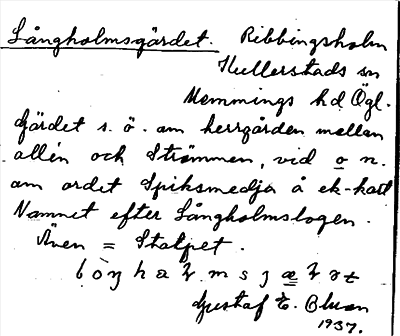 Långholmsgärdet. Ribbingsholm
Kullerstads sn
Memmings hd Ögl.
Gärdet s. ö. om herrgården mellan
allén och Strömmen, vid o n.
om ordet Spiksmedja å ek-kart.
Namnet efter Långholmslogen.
Även = Stolpet.
Gustaf E. Blum
1937.